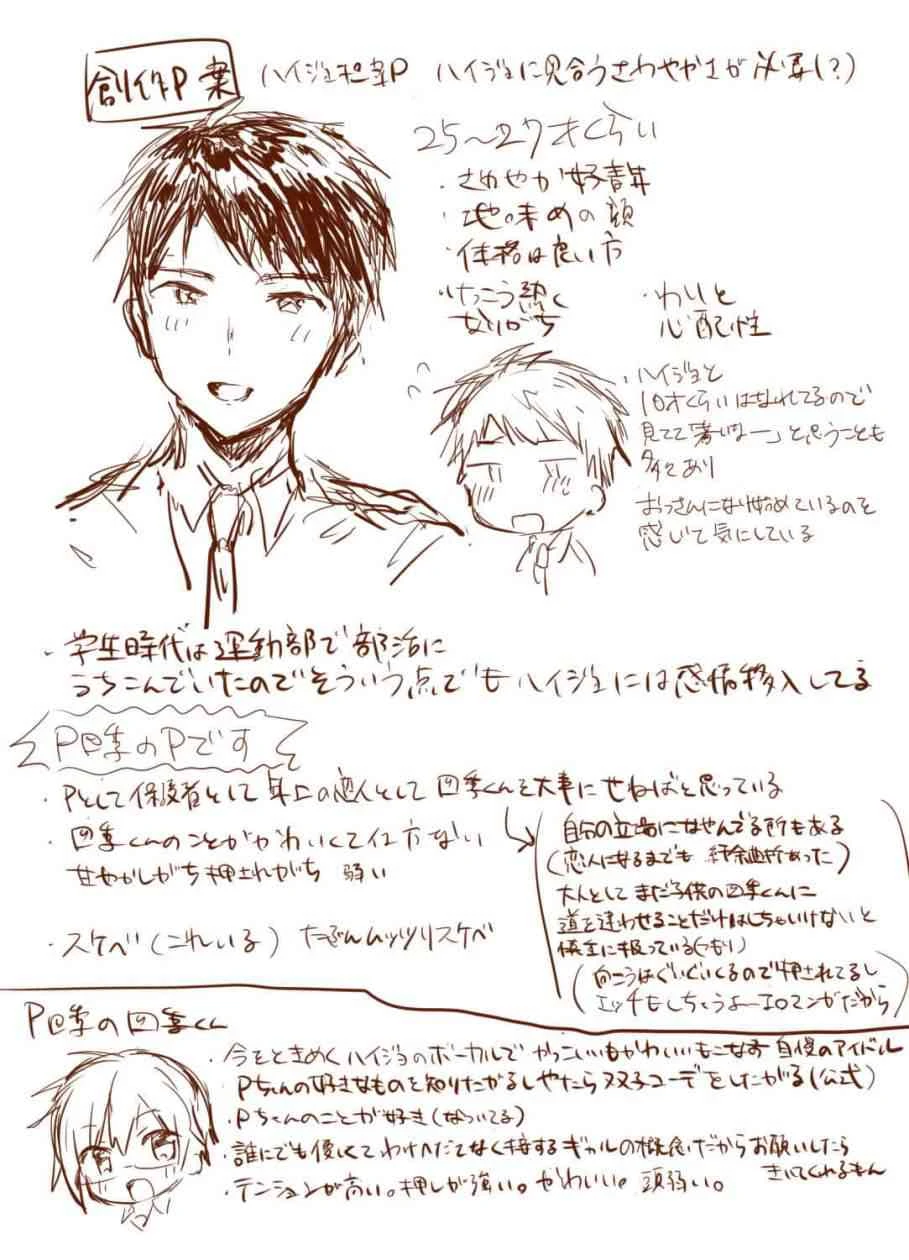 創作P 案
ハイジョ担当P ハイジョに見合うさわやかさが必要(?)
25〜27才くらい
・さわやか好青年
・地味めの顔
・体格は良い方
・けっこう熱く
なりがち
・わりと
心配性
・ハイジョと
10才くらいはなれてるので
見てて「若いなー」と思うことも
多々あり
おっさんになり始めているのを
感じて気にしている
・学生時代は運動部で部活に
うちこんでいたのでそういう点でもハイジョには感情移入してる
P四季のPです
・Pとして保護者として年上の恋人として四季くんを大事にせねばと思っている
・四季くんのことがかわいくて仕方ない
甘やかしがち押されがち 弱い
・スケベ(これいる) たぶんムッツリスケベ
自分の立場になやんでる所もある
(恋人になるまでも紆余曲折あった)
大人としてまだ子供の四季くんに
道を違わせることだけはしちゃいけないと
慎重に扱っている(つもり)
(向こうはぐいぐいくるので押されてるし
エッチもしちゃうよーエロマンガだから)
P四季の四季くん
・今をときめくハイジョのボーカルでかっこいいもかわいいもこなす自慢のアイドル
・Pちゃんの好きなものを知りたがるしやたら双子コーデをしたがる(公式)
・Pちゃんのことが好き(なついてる)
・誰にでも優しくてわけへだてなく接するギャルの概念だからお願いしたら
きいてくれるもん
・テンションが高い。押しが強い。かわいい。頭弱い。